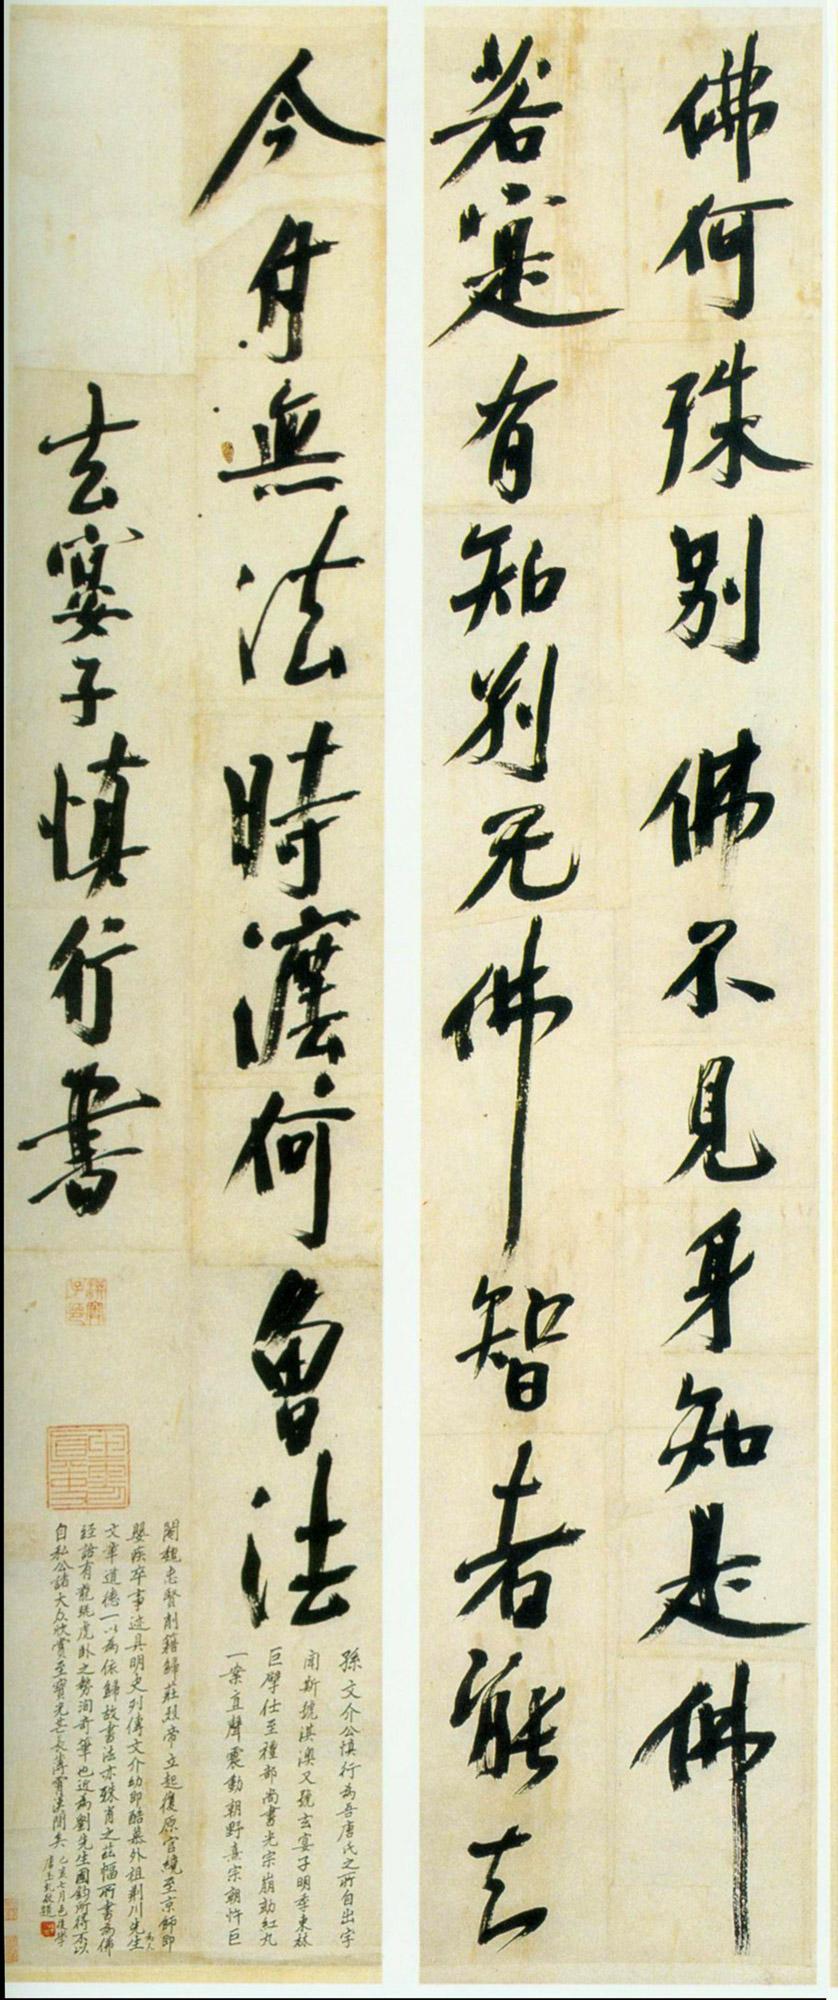 佛何殊別 佛不見身知是佛
若寔有知別无佛智者能
今付無法時灋何曾法
玄宴子慎行書
孫文介公慎行為吾唐氏之所自出字
聞斯號淇澳又號玄宴子明季東林
巨擘仕至禮部尚書光宗崩劾紅丸
一案直聲震動朝野熹宗朝忤巨
閹魏忠賢削籍歸莊烈帝立起復原官纔至京師即
嬰疾卒事迹具明史列傳文介幼即酷慕外祖荊川先生為人
文章道德一以為依歸故書法亦殊肖之茲幅所書為佛
經語有龍跳虎臥之勢洵奇筆也近為劉先生國鈞所得不以
自私公諸大众欣賞至寶光芒長溥霄漢間矣 己亥七月邑後學
唐玉虬敬題